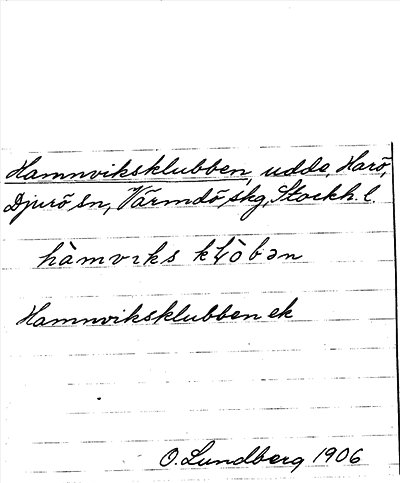 Hamnviksklubben, udde, Harö,
Djurö sn, Värmdö skg, Stockh. l.
hàmvıks
Hamnviksklubben ek
O. Lundberg 1906